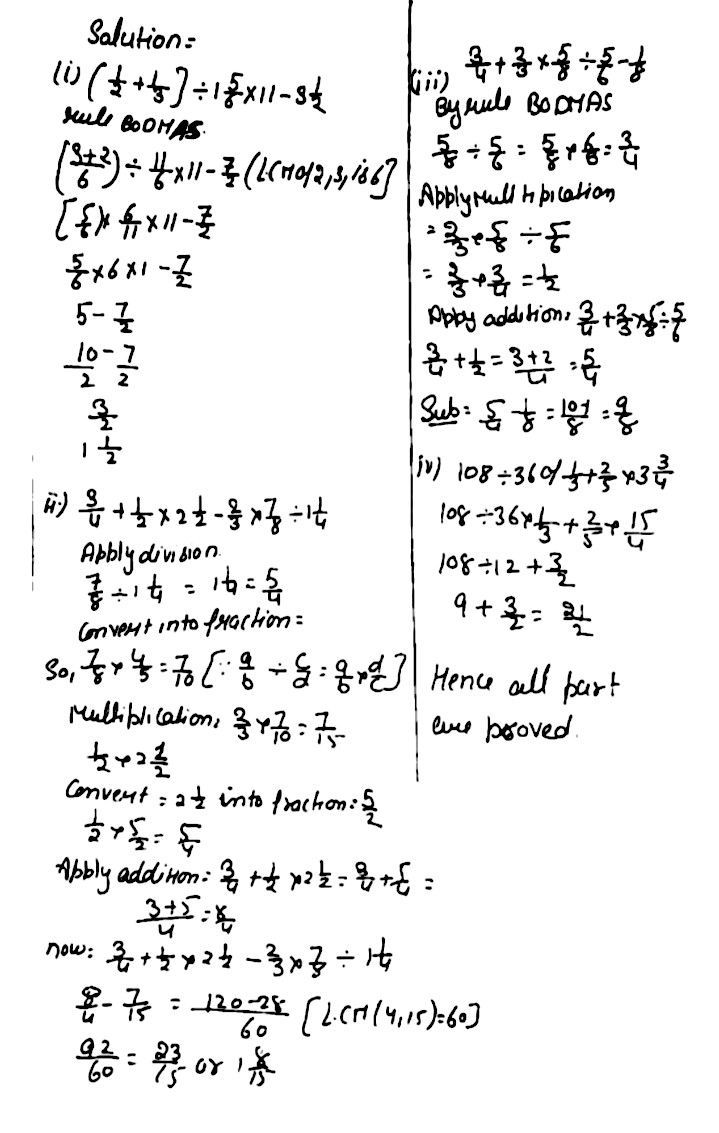 Solution:
(i) (1/2 + 1/3] ÷ 1 5/6 × 11 - 3 1/2
rule BODMAS.
(3+2/6) ÷ 11/6 × 11 - 7/2 (LCM of 2, 3, is 6]
[5/6] × 6/11 × 11 - 7/2
5/6 × 6 × 1 - 7/2
5 - 7/2
10/2 - 7/2
3/2
1 1/2
ii.) 3/4 + 1/2 × 2 1/2 - 2/3 × 7/8 ÷ 1 1/4
Apply division.
7/8 ÷ 1 1/4 = 1 1/4 = 5/4
Convert into fraction =
So, 7/8 × 4/5 = 7/10 [∵ a/b ÷ c/d = a/b × d/c]
Multiplication, 2/3 × 7/10 = 7/15
1/2 × 2 1/2
Convert = 2 1/2 into fraction: 5/2
1/2 × 5/2 = 5/4
Apply addition: 3/4 + 1/2 × 2 1/2 = 3/4 + 5/4 =
3+5/4 = 8/4
now: 3/4 + 1/2 × 2 1/2 - 2/3 × 7/8 ÷ 1 1/4
8/4 - 7/15 = 120-28/60 [LCM(4,15)=60]
92/60 = 23/15 or 1 8/15
(iii) 3/4 + 2/3 × 5/8 ÷ 5/6 - 1/8
By rule BODMAS
5/8 ÷ 5/6 = 5/8 × 6/8 = 3/4
Apply multiplication
= 2/3 × 5/8 ÷ 5/6
= 2/3 × 3/4 = 1/2
Apply addition: 3/4 + 2/3 × 5/8 ÷ 5/6
3/4 + 1/2 = 3+2/4 = 5/4
Sub: 5/4 - 1/8 = 10-1/8 = 9/8
iv) 108 ÷ 36 of 1/3 + 2/5 × 3 3/4
108 ÷ 36 × 1/3 + 2/5 × 15/4
108 ÷ 12 + 3/2
9 + 3/2 = 21/2
Hence all part
are proved.